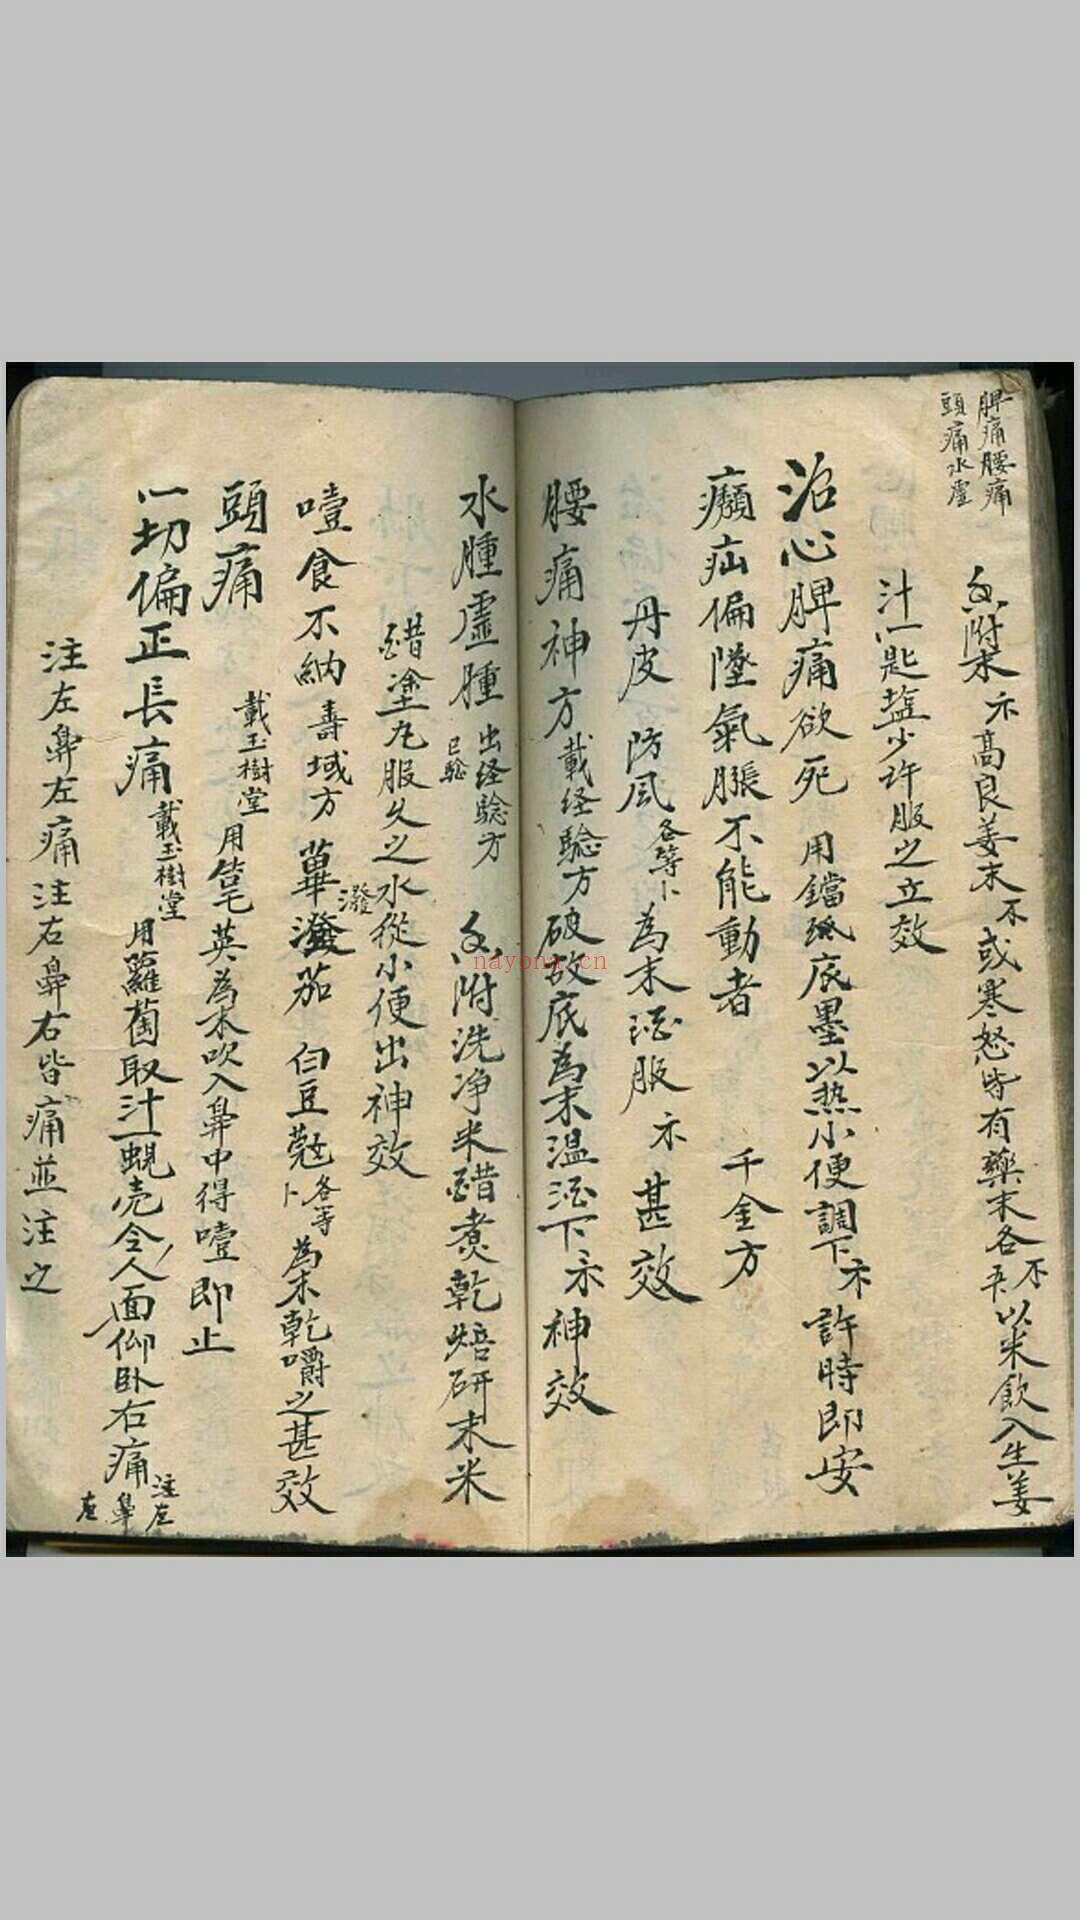 脾痛腰痛
頭痛水虛
香附末 高良姜末 或寒怒皆有藥末各 以米飲入生姜
汁一匙盐少许服之立效
治心脾痛欲死 用鐺底墨以热小便調下 許時即安
癩疝偏墜氣脹不能動者 千金方
丹皮 防風 各等卜 為末酒服 甚效
腰痛神方 載経驗方 破故底為末温酒下 神效
水腫虛腫 出経驗方 已驗 香附洗净米醋煮乾焙研末米
醋塗丸服久之水從小便出神效
噎食不納 壽域方 蓽澄茄 白豆蔻 各等卜 為末乾嚼之甚效
潑
頭痛 載玉樹堂 用 英為末吹入鼻中得嚏即止
一切偏正長痛 載玉樹堂 用蘿蔔取汁一蜆壳令人面仰卧右痛 注左鼻左
注左鼻左痛注右鼻右皆痛並注之
nayona.cn